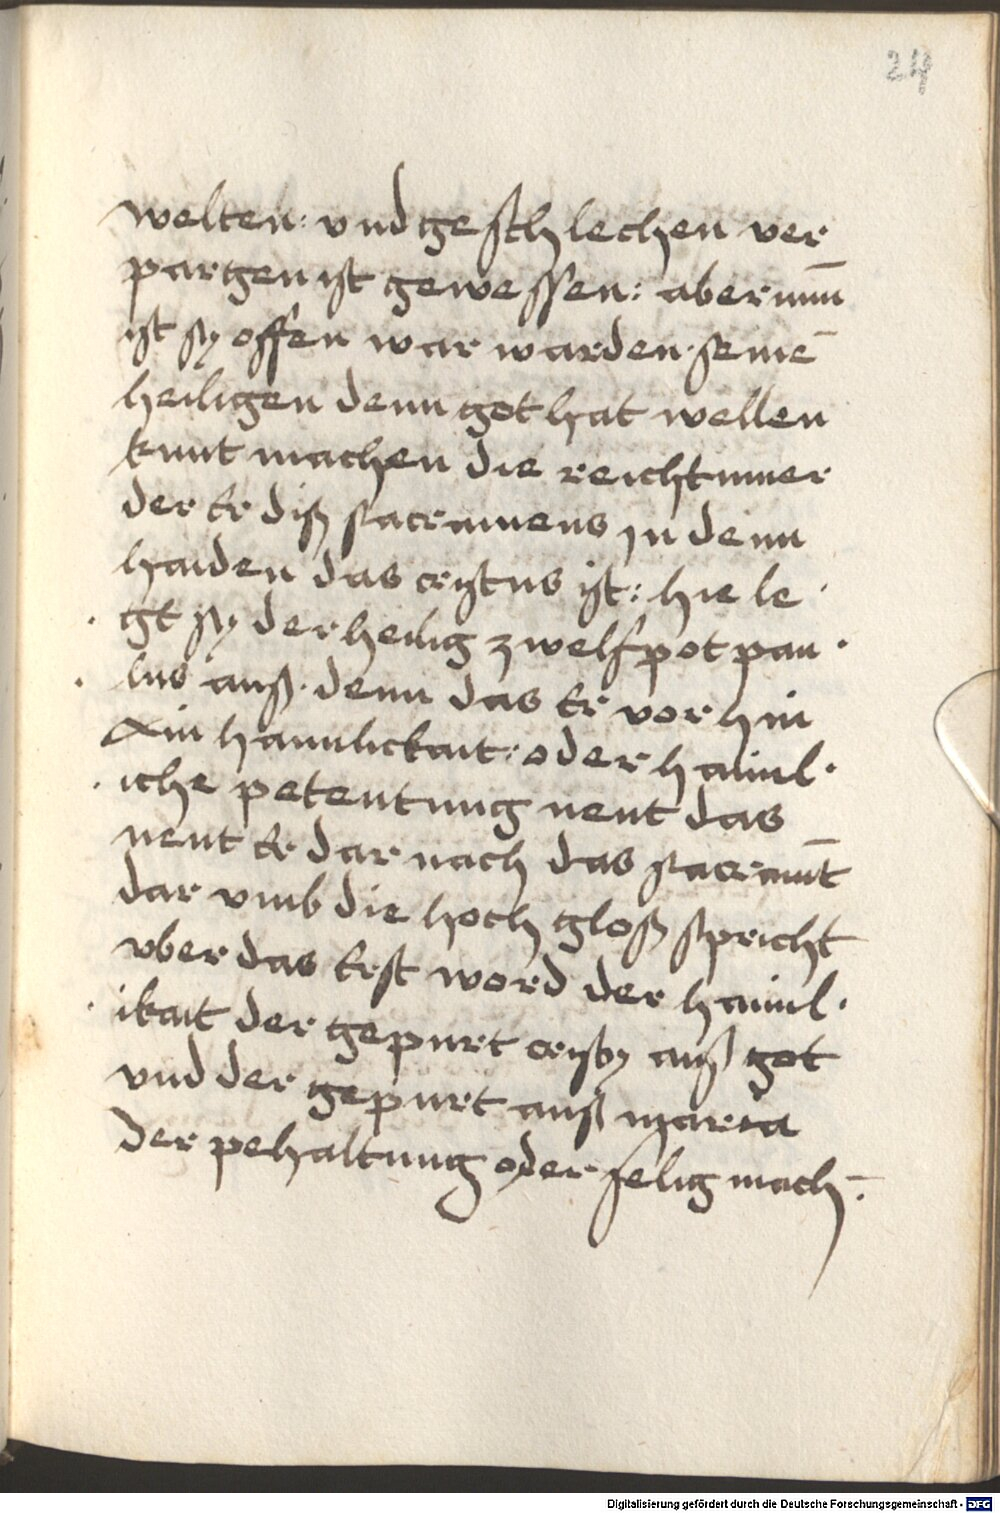 24
welten: vnd geschlechen ver
pargen ist gewessen: aber nun̄
ist sy offen war warden. seinē
heiligen denn got hat wellen
kunt machen die reichtumer
der Er diß sacramens jn denn
haiden das cristus ist: hie le·
·gt sy der heilig zwelfpot pau·
·lus auß. denn das Er vor hin
Ain hannlickait: oder haiml·
·iche petentung nent das
nent Er dar nach das sacramt̄
dar vmb die hoch gloß spricht
vber das Erst word der haiml·
·ikait der gepurt cristy auß got
vnd der gepurt auß maria
Der pehaltung oder selig mach·
Digitalisierung gefördert durch die Deutsche Forschungsgemeinschaft - DFG